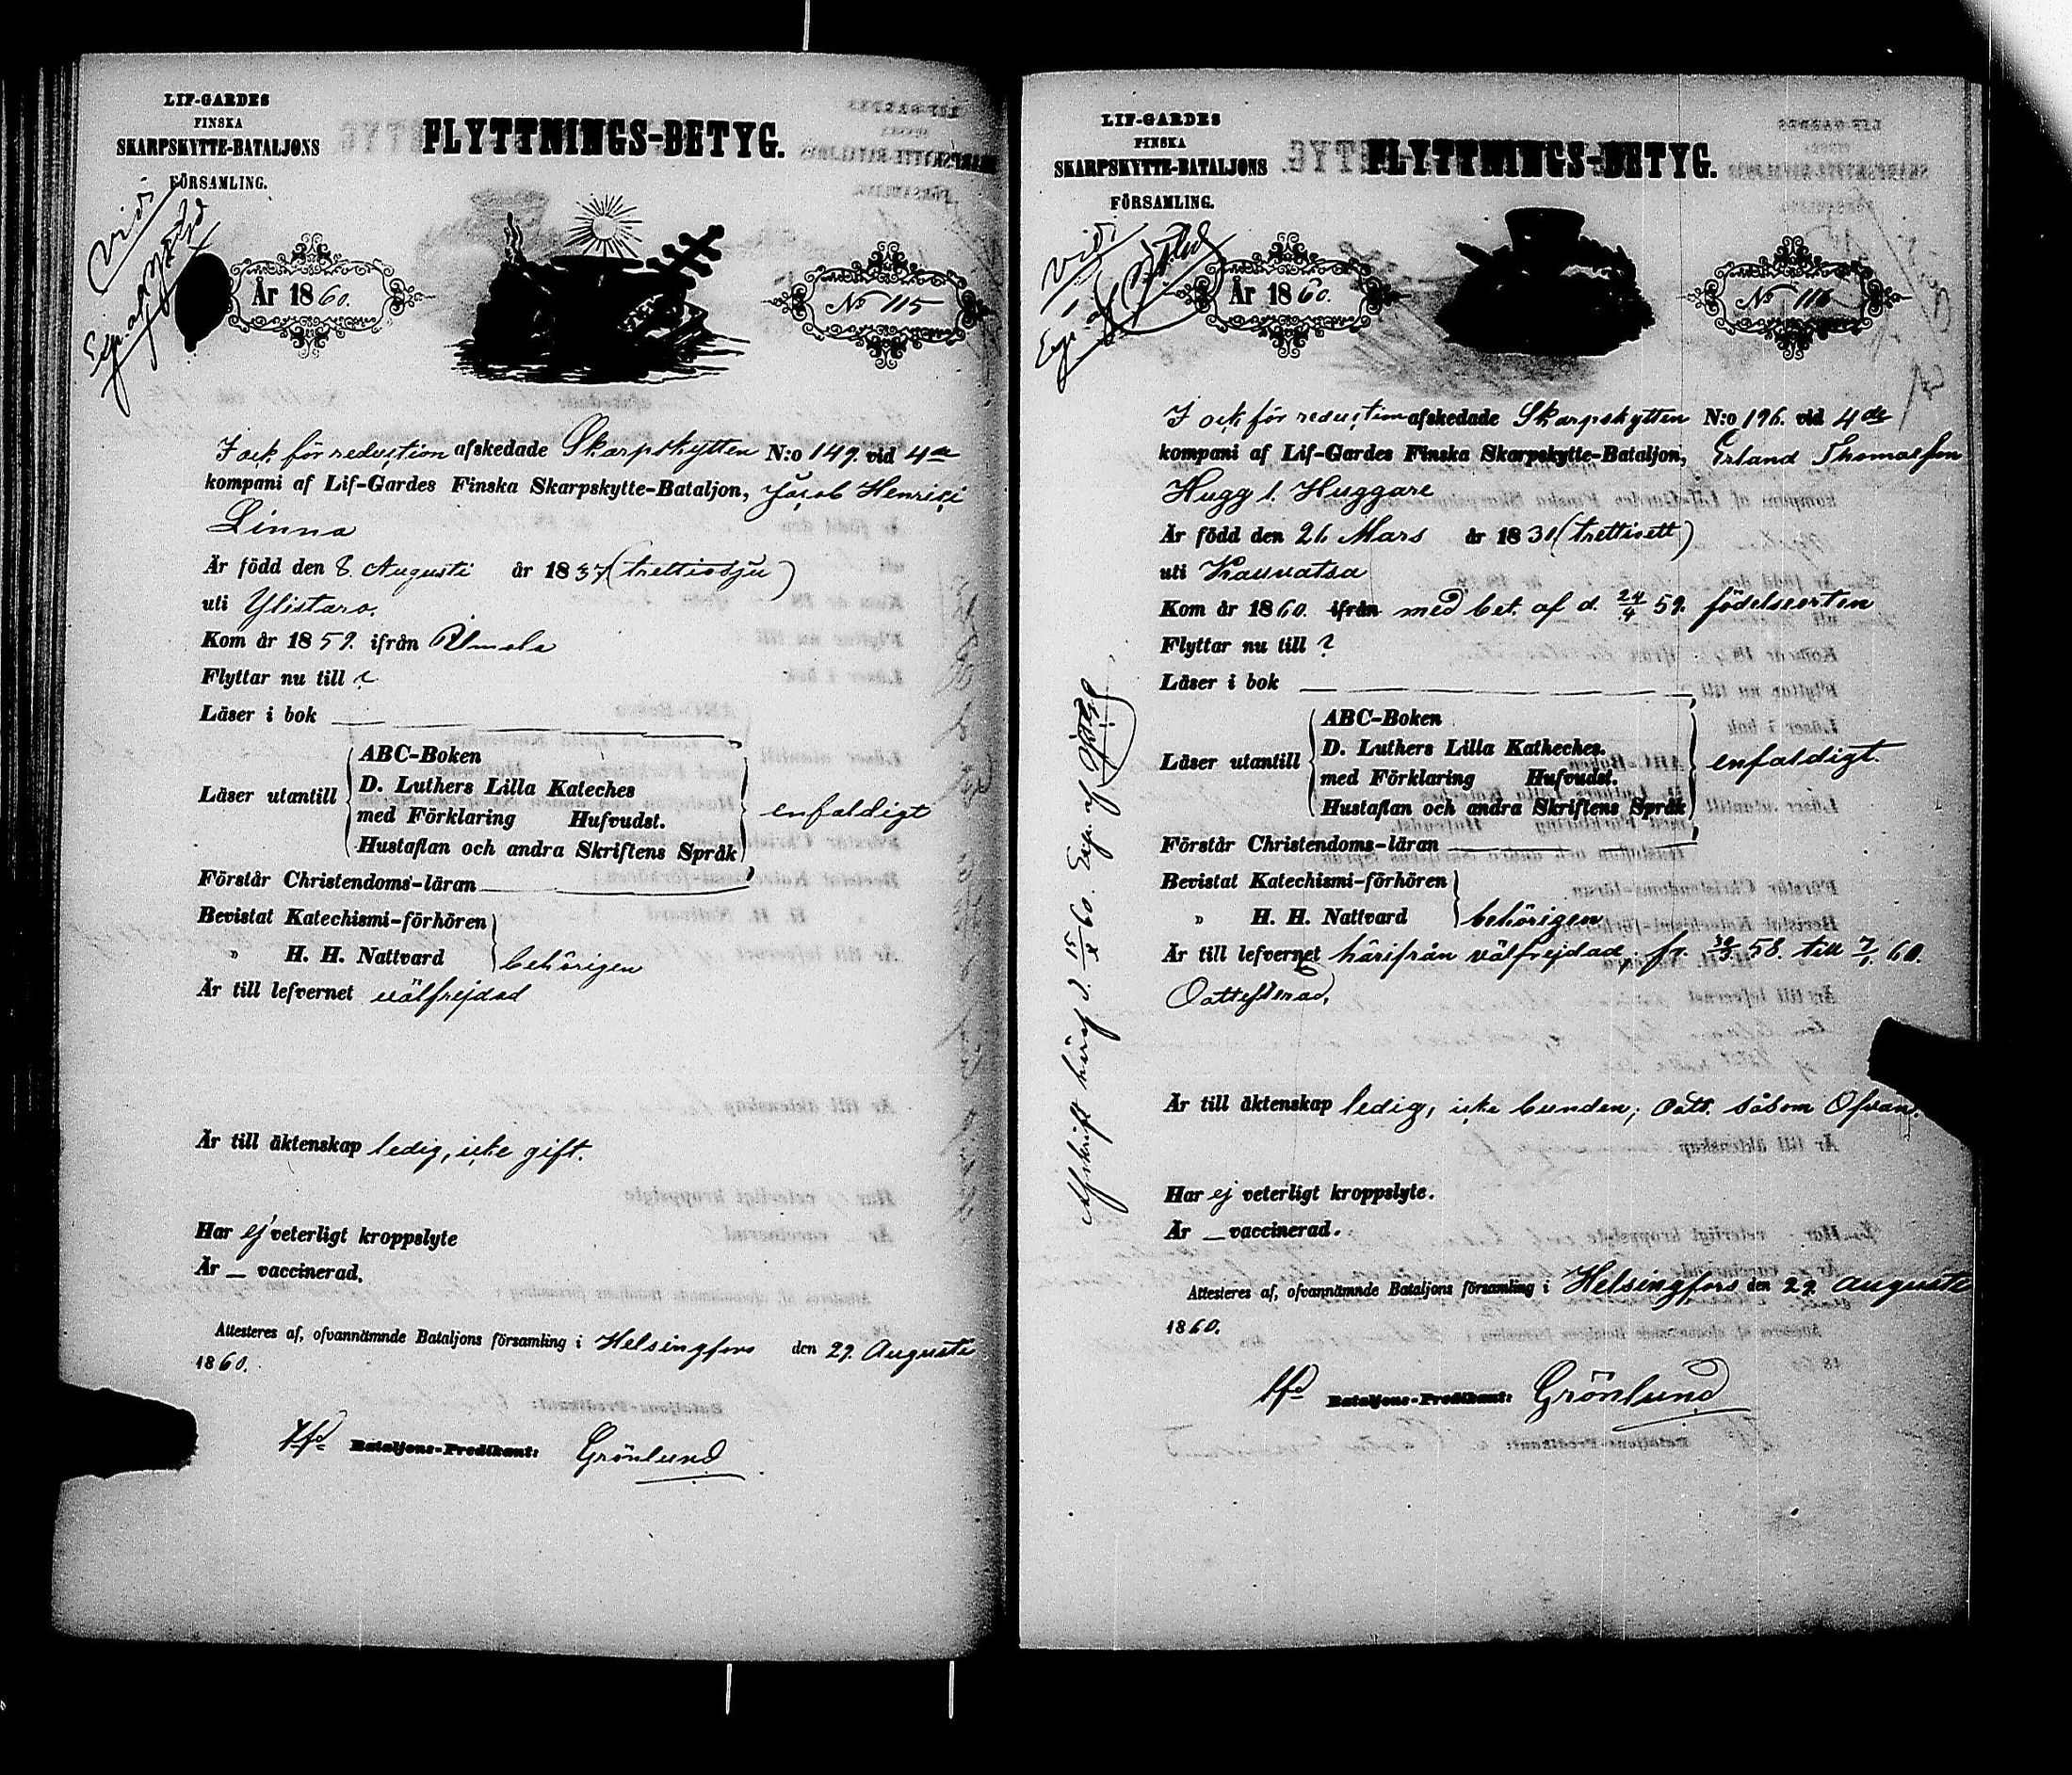 LIF-GARDES
FINSKA
SKARPSKYTTE-BATALJONS
FÖRSAMLING.
FLYTTNINGS-BETYG.
Vidi
År 1860.
No 115
I och för reduction afskedade Skarpskytten N:o 149. vid 4de
kompani af Lif-Gardes Finska Skarpskytte-Bataljon, Jacob Henrici
Linna
Är född den 8. Augusti år 1837 (trettiosju)
uti Ylistaro.
Kom år 1859. ifrån Ilmola
Flyttar nu till ?
Läser i bok
Läser utantill
ABC-Boken
D. Luthers Lilla Kateches
med Förklaring Hufvudst.
Hustaflan och andra Skriftens Språk
enfaldigt
Förstår Christendoms-läran
Bevistat Katechismi-förhören
„ H. H. Nattvard
behörigen
Är till lefvernet välfrejdad
Är till äktenskap ledig, icke gift.
Har ej veterligt kroppslyte
Är _ vaccinerad.
Attesteres af, ofvannämnde Bataljons församling i Helsingfors den 29. Augusti
1860.
Bataljons-Predikant: Grönlund
LIF-GARDES
FINSKA
SKARPSKYTTE-BATALJONS
FÖRSAMLING.
FLYTTNINGS-BETYG.
Vidi
År 1860.
No 116
I och för reduction afskedade Skarpskytten N:o 196. vid 4de
kompani af Lif-Gardes Finska Skarpskytte-Bataljon, Erland Thomasson
Hugg l. Huggare
Är född den 26 Mars år 1831 (trettioett)
uti Kauvatsa
Kom år 1860. ifrån med bet. af d. 24/4 59. födelseorten
Flyttar nu till ?
Läser i bok
Läser utantill
ABC-Boken
D. Luthers Lilla Katheches.
med Förklaring Hufvudst.
Hustaflan och andra Skriftens Språk
enfaldigt.
Förstår Christendoms-läran
Bevistat Katechismi-förhören
„ H. H. Nattvard
behörigen
Är till lefvernet härifrån välfrejdad; fr. 58. till 60.
Oattesterad.
Är till äktenskap ledig, icke bunden; Oatt. såsom Ofvan.
Har ej veterligt kroppslyte.
Är _ vaccinerad.
Attesteres af, ofvannämnde Bataljons församling i Helsingfors den 29. Augusti
1860.
Bataljons-Predikant: Grönlund
Afskrift häraf d. 15/x 60. Exp. af